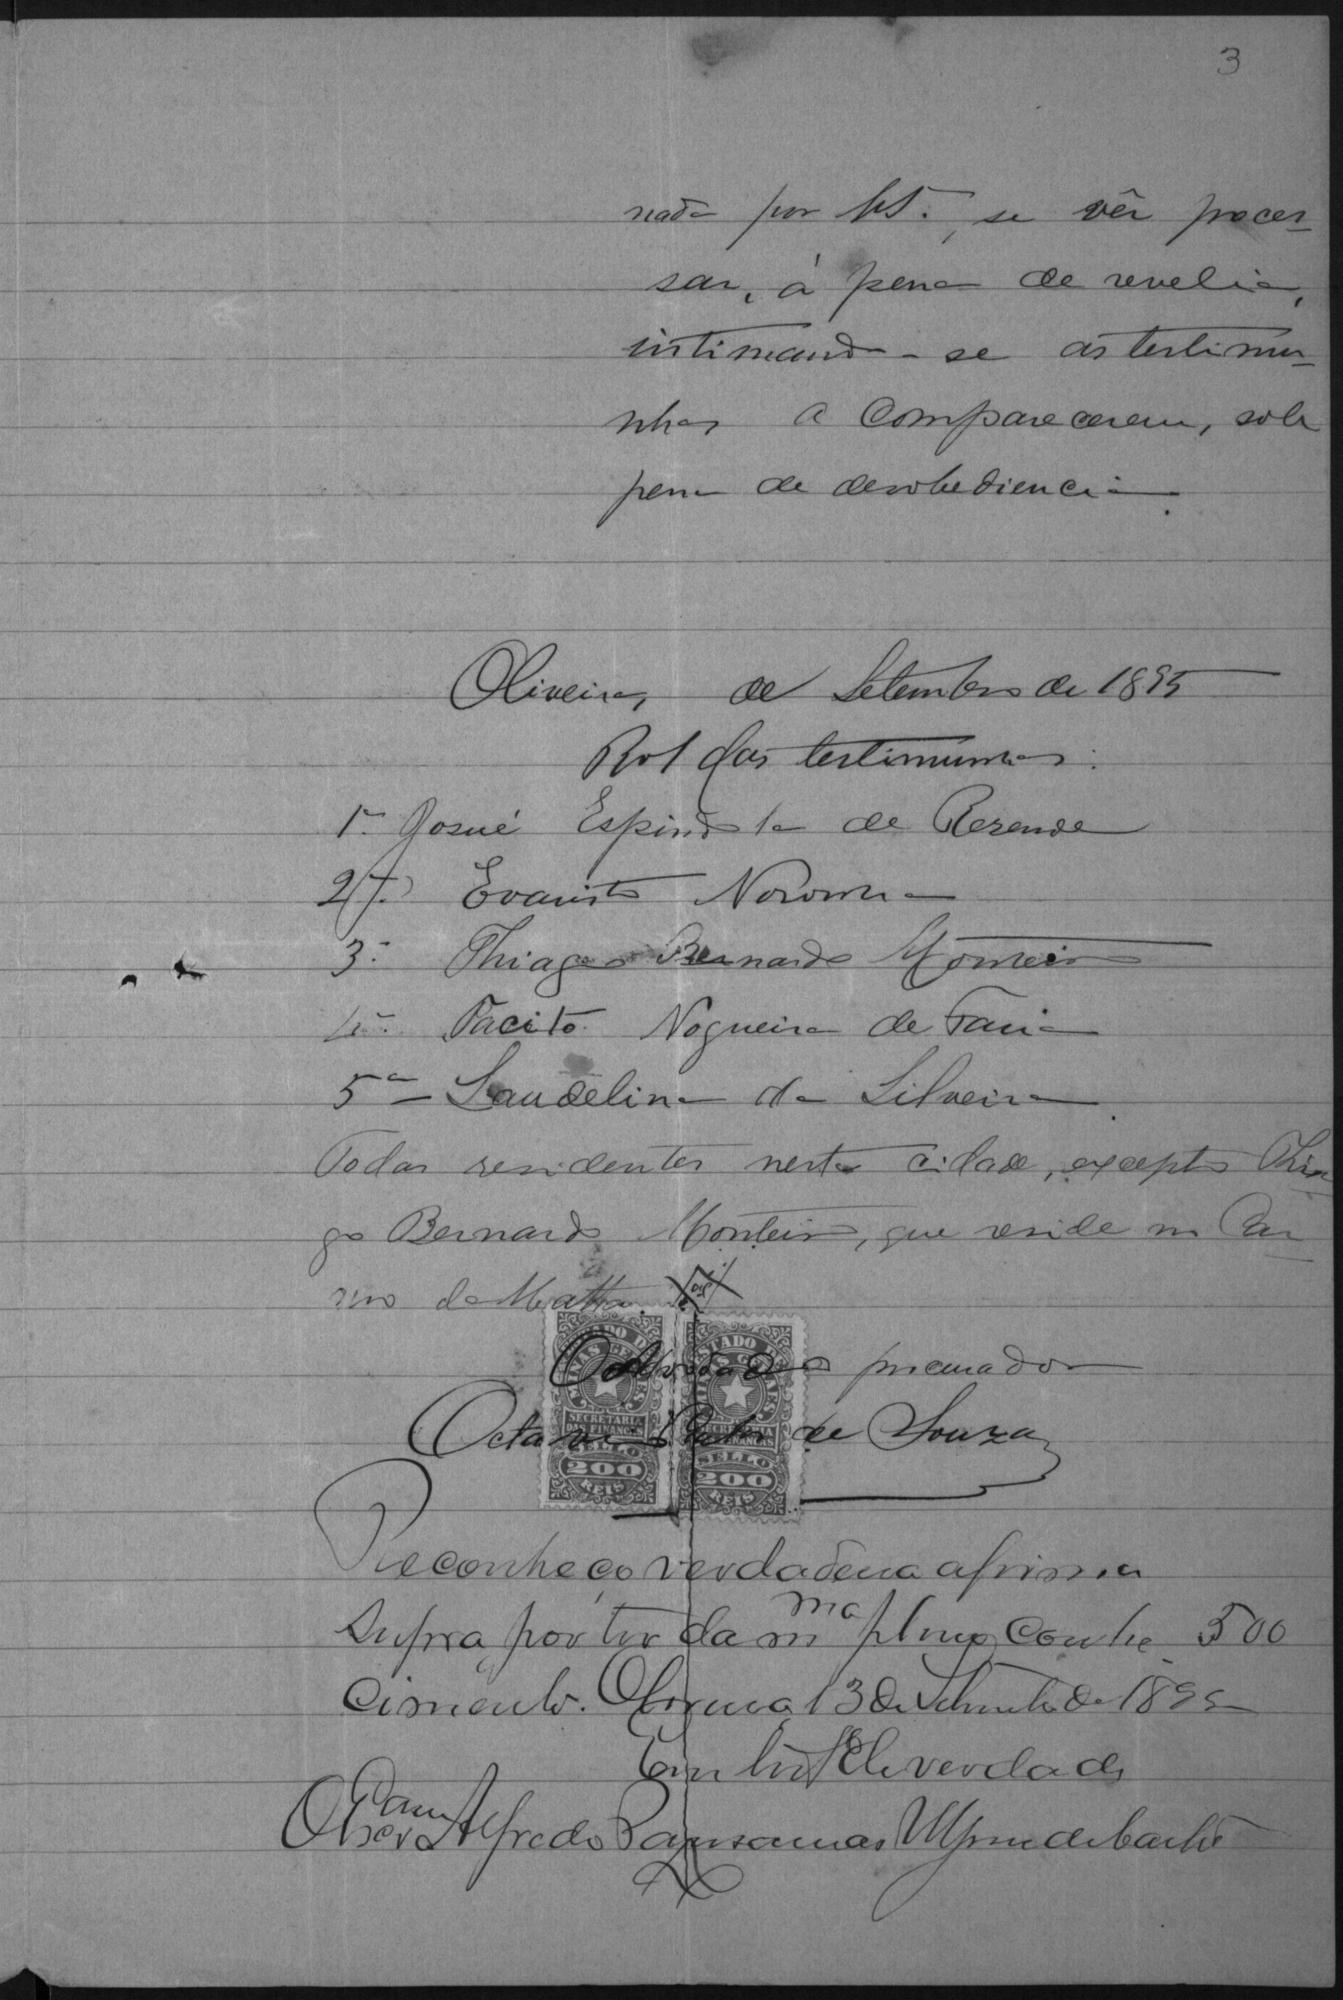 3
nada por V.S., se vêr proces-
sar, á pena de revelia,
intimando-se as testimu-
nhas a comparecerem, sob
pena de desobediencia.
Oliveira, de Setembro de 1895
Rol das testimunhas:
1ª Josué Espindola de Rezende
2ª Evaristo Noronha
3ª Thiago Bernardo Monteiro
4ª Tacito Nogueira de Faria
5ª Laudelina da Silveira
Todas residentes nesta cidade, excepto Thia-
go Bernardo Monteiro, que reside no Car-
mo da Matta.
ESTADO DE MINAS GERAES
SECRETARIA DAS FINANÇAS
SELLO
200
REIS
ESTADO DE MINAS GERAES
SECRETARIA DAS FINANÇAS
SELLO
200
REIS
O procurador
Octavio de Souza
Reconheço verdadeira a firma
supra por ter da mma pleno conhe 500
cimento. Oliveira 13 de Setembro de 1895
Em da verdade
Alfredo